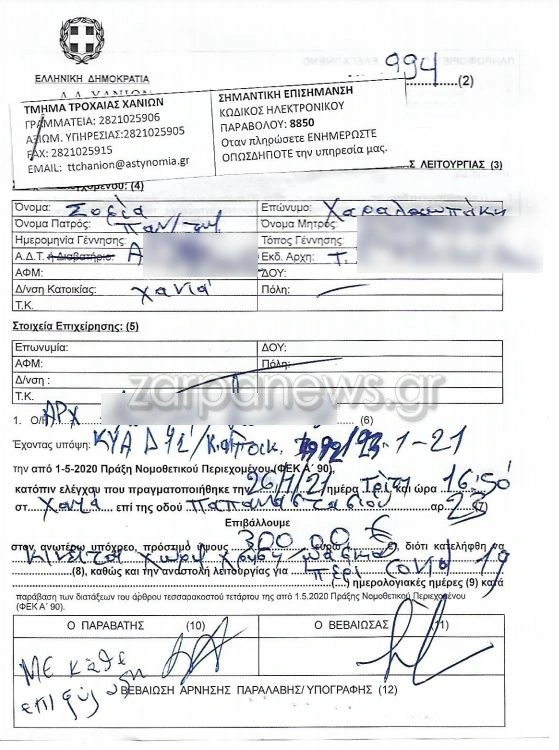 994
ΕΛΛΗΝΙΚΗ ΔΗΜΟΚΡΑΤΙΑ (2)
ΤΜΗΜΑ ΤΡΟΧΑΙΑΣ ΧΑΝΙΩΝ
ΓΡΑΜΜΑΤΕΙΑ: 2821025906
ΑΞΙΩΜ. ΥΠΗΡΕΣΙΑΣ:2821025905
FAX: 2821025915
EMAIL: ttchanion@astynomia.gr
ΣΗΜΑΝΤΙΚΗ ΕΠΙΣΗΜΑΝΣΗ
ΚΩΔΙΚΟΣ ΗΛΕΚΤΡΟΝΙΚΟΥ
ΠΑΡΑΒΟΛΟΥ: 8850
Οταν πληρώσετε ΕΝΗΜΕΡΩΣΤΕ
ΟΠΩΣΔΗΠΟΤΕ την υπηρεσία μας.
Σ ΛΕΙΤΟΥΡΓΙΑΣ (3)
(4)
Όνομα: Σοφία Επώνυμο: Χαραλαμπάκη
Όνομα Πατρός: Παν/τη Όνομα Μητρός:
Ημερομηνία Γέννησης: Τόπος Γέννησης
Α.Δ.Τ ή Διαβατήριο: Α Εκδ. Αρχη: Τ.
ΑΦΜ: ΔΟΥ:
Δ/νση Κατοικίας: Χανιά Πόλη:
Τ.Κ.
Στοιχεία Επιχείρησης: (5)
Επωνυμία: ΔΟΥ:
ΑΦΜ: Πόλη:
Δ/νση :
Τ.Κ.
zarpanews.gr
1. Ο/Η ΑΡΧ (6)
Έχοντας υπόψη: ΚΥΑ 1-21
την από 1-5-2020 Πράξη Νομοθετικού Περιεχομένου (ΦΕΚ Α΄ 90),
κατόπιν ελέγχου που πραγματοποιήθηκε την 26/1/21 ημέρα Τρίτη και ώρα 16:50
στ Χανιά επί της οδού Παπαναστασίου αρ. 25 (7)
Επιβάλλουμε
στον ανωτέρω υπόχρεο, πρόστιμο ύψους 300 00 € ευρώ, διότι κατελήφθη να
κινείται χωρίς
(8), καθώς και την αναστολή λειτουργίας για περί covid 19
(...) ημερολογιακές ημέρες (9) κατά
παράβαση των διατάξεων του άρθρου τεσσαρακοστού τετάρτου της από 1.5.2020 Πράξης Νομοθετικού Περιεχομένου
(ΦΕΚ Α΄ 90).
Ο ΠΑΡΑΒΑΤΗΣ (10) Ο ΒΕΒΑΙΩΣΑΣ (11)
ΜΕ κάθε
επιφύλαξη
ΒΕΒΑΙΩΣΗ ΑΡΝΗΣΗΣ ΠΑΡΑΛΑΒΗΣ/ ΥΠΟΓΡΑΦΗΣ (12)